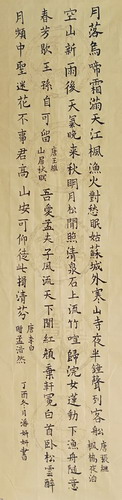 月落烏啼霜滿天江楓漁火對愁眠姑蘇城外寒山寺夜半鐘聲到客船 唐張繼 楓橋夜泊
空山新雨後天氣晚來秋明月松間照清泉石上流竹喧歸浣女蓮動下漁舟隨意
春芳歇王孫自可留 唐王維 山居秋暝 吾愛孟夫子風流天下聞紅顏棄軒冕白首臥松雲醉
月頻中聖迷花不事君高山安可仰徒此揖清芬 唐李白 贈孟浩然 丁酉冬月潘書